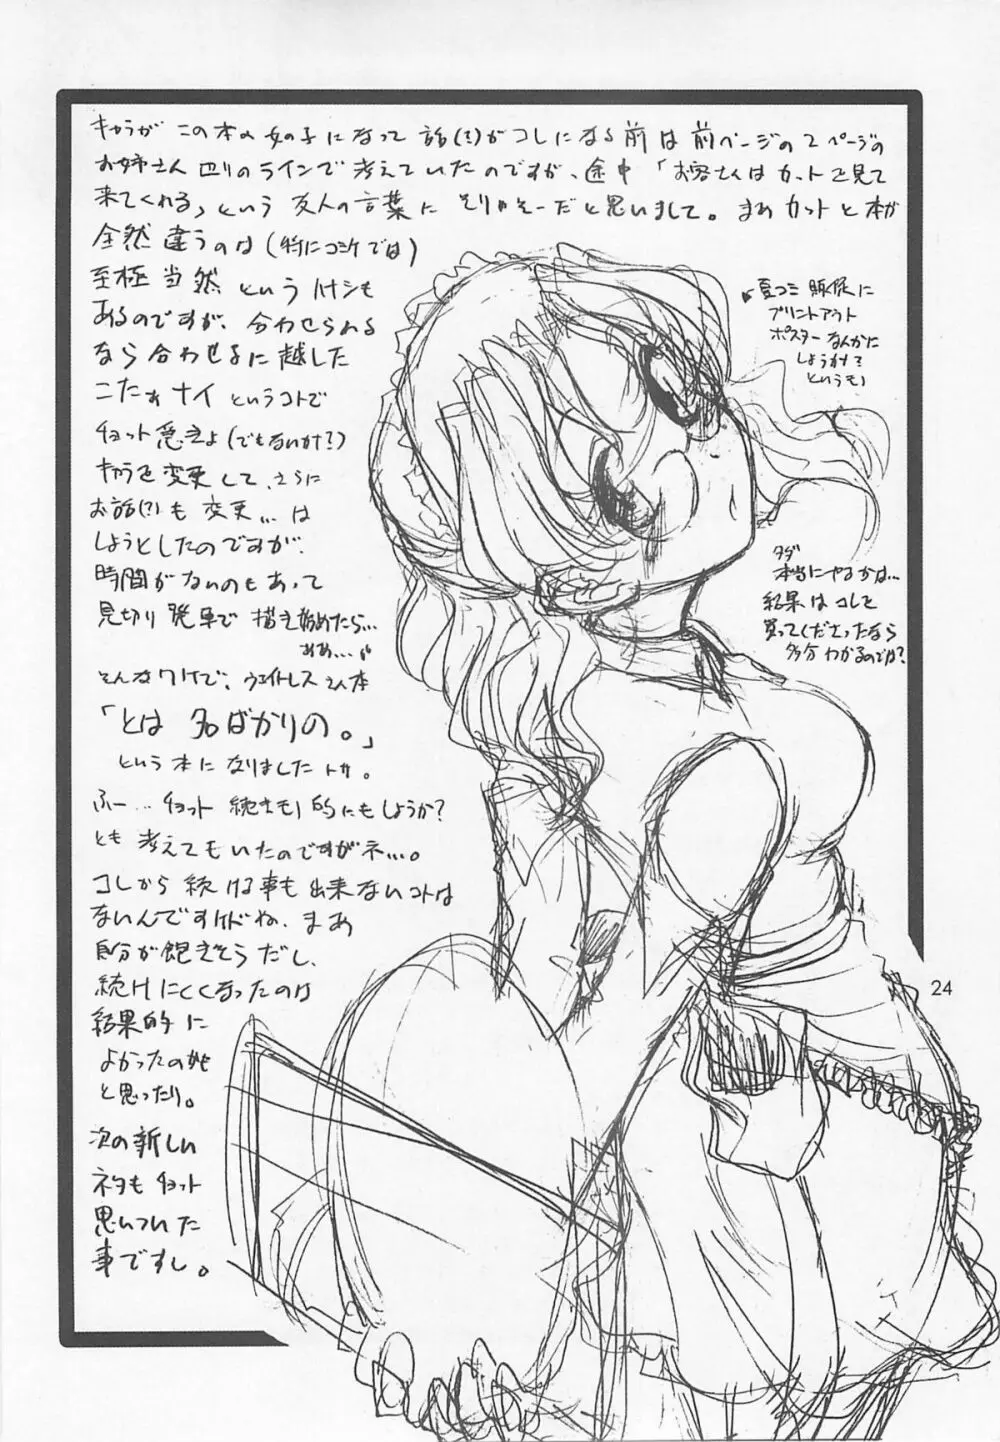 キャラが この本の女の子になって 話(?)がコレになる前は前ページの2ページの
お姉さん辺りのラインで考えていたのですが、途中「お客さんはカットを見て
来てくれる」という友人の言葉に そりゃそーだと思いまして。まぁカットと本が
全然違うのは(特にコミケでは)
至極当然というハナシも
あるのですが、合わせられる
なら合わせるに越した
こたぁナイというコトで
チョット急きょ(でもないか?)
キャラを変更して、さらに
お話(?)も変更...は
しようとしたのですが、
時間がないのもあって
見切り発車で描き始めたら...
ああ...。
そんなワケで、ウェイトレスさん本
「とは名ばかりの。」
という本になりましたトサ。
ふー...チョット続きもの的にもしようか?
とも考えてもいたのですがネ...。
コレから続ける事も出来ないコトは
ないんですケドね、まぁ
自分が飽きそうだし、
続けにくくなったのは
結果的に
よかったのかも
と思ったり。
次の新しい
ネタもチョット
思いついた
事ですし。
夏コミ販促に
プリントアウト
ポスターなんかに
しようか?
というも
タダ
本当にやるかは...
結果はコレを
買ってくださったなら
多分わかるのでは?
24